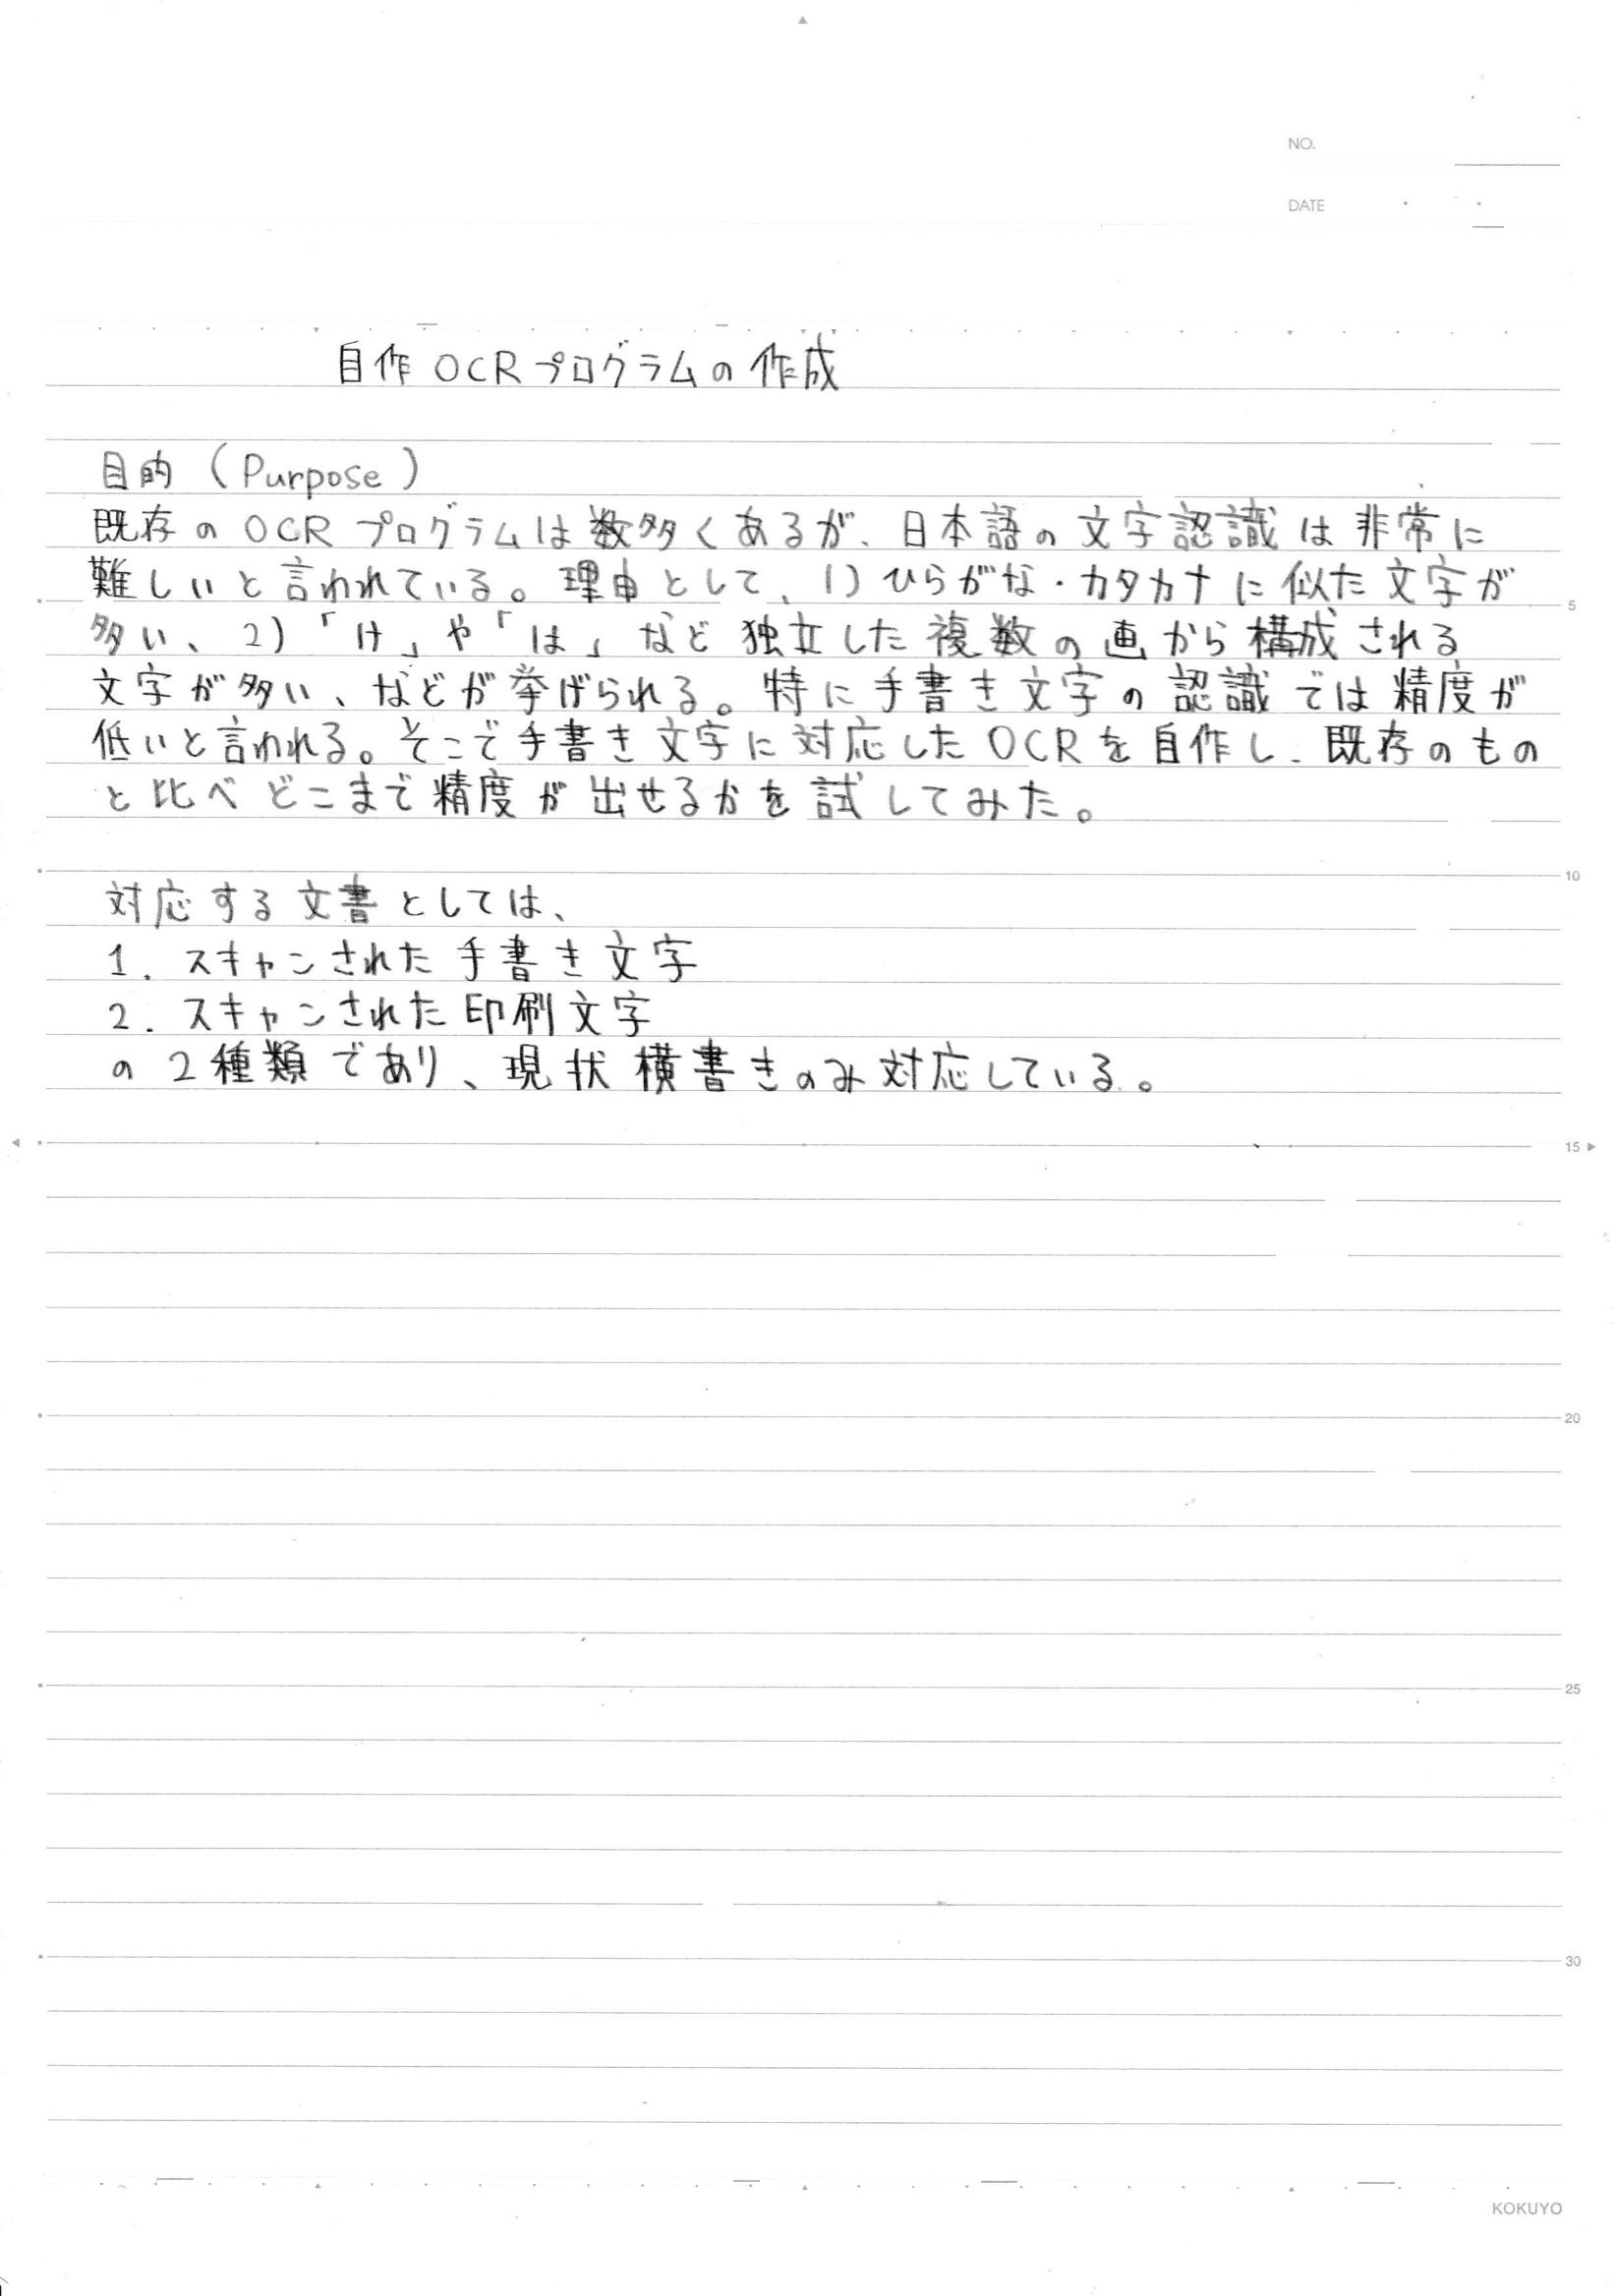 NO.
DATE
自作OCRプログラムの作成
目的(Purpose)
既存のOCRプログラムは数多くあるが、日本語の文字認識は非常に
難しいと言われている。理由として、1)ひらがな・カタカナに似た文字が
5
多い、2)「け」や「は」など独立した複数の画から構成される
文字が多い、などが挙げられる。特に手書き文字の認識では精度が
低いと言われる。そこで手書き文字に対応したOCRを自作し、既存のもの
と比べどこまで精度が出せるかを試してみた。
10
対応する文書としては、
1. スキャンされた手書き文字
2. スキャンされた印刷文字
の2種類であり、現状横書きのみ対応している。
15
20
25
30
KOKUYO